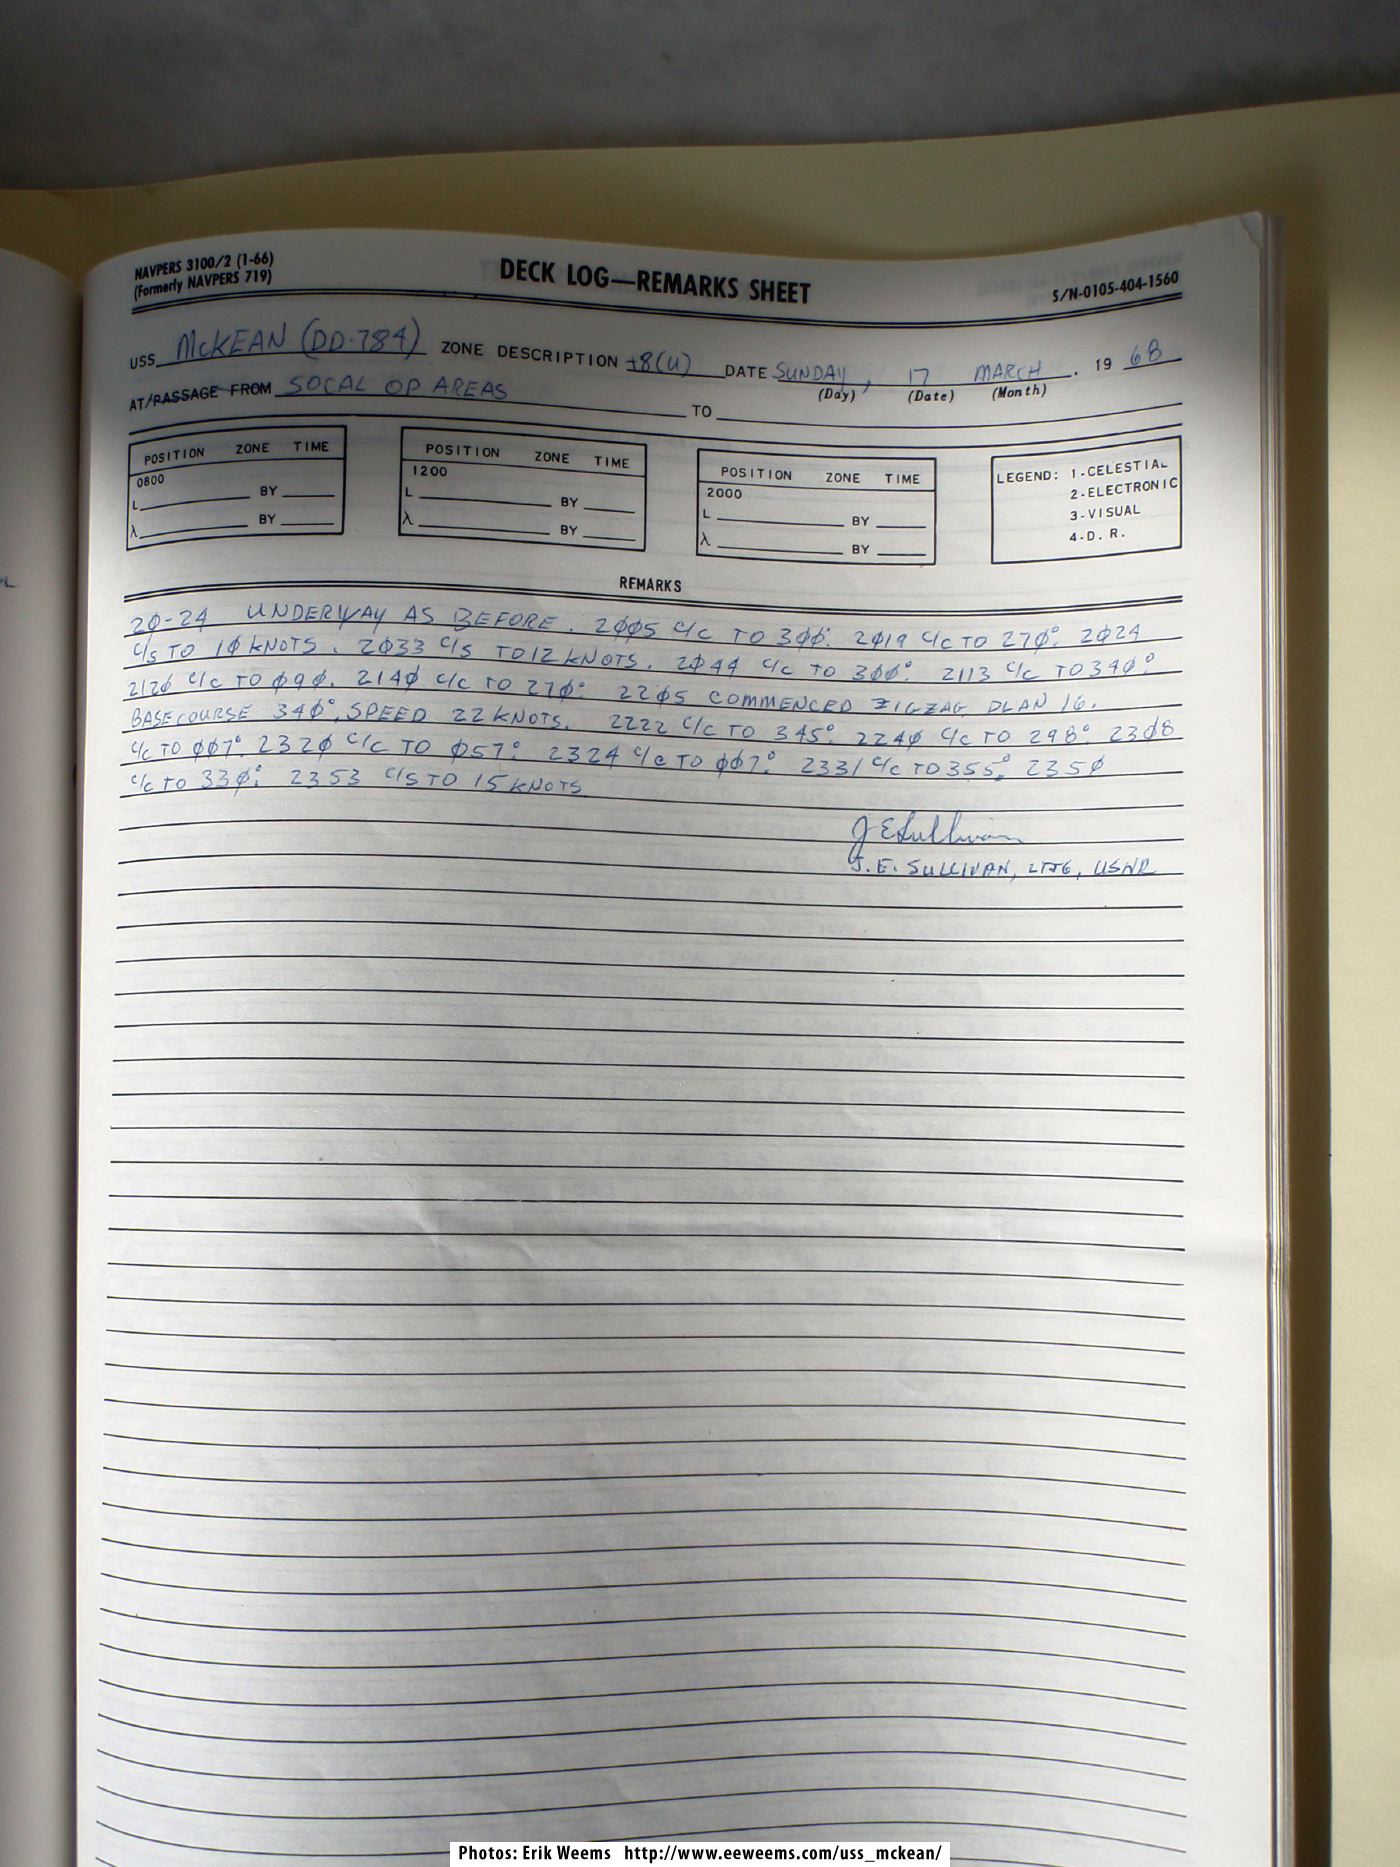 NAVPERS 3100/2 (1-66)
(Formerly NAVPERS 719)
DECK LOG—REMARKS SHEET
S/N-0105-404-1560
USS McKEAN (DD-784) ZONE DESCRIPTION +8(U) DATE SUNDAY, 17 MARCH. 19 68
(Day) (Date) (Month)
AT/PASSAGE FROM SOCAL OP AREAS TO
POSITION ZONE TIME
0800
L BY
λ BY
POSITION ZONE TIME
1200
L BY
λ BY
POSITION ZONE TIME
2000
L BY
λ BY
LEGEND: 1-CELESTIAL
2-ELECTRONIC
3-VISUAL
4-D. R.
REMARKS
2Ø-24 UNDERWAY AS BEFORE. 2ØØ5 C/C TO 3ØØ°. 2Ø19 C/C TO 27Ø°. 2Ø24
C/S TO 1Ø KNOTS. 2Ø33 C/S TO 12 KNOTS. 2Ø44 C/C TO 3ØØ°. 2113 C/C TO 34Ø°.
212Ø C/C TO Ø9Ø. 214Ø C/C TO 27Ø°. 22Ø5 COMMENCED ZIGZAG PLAN 16.
BASECOURSE 34Ø°, SPEED 22 KNOTS. 2222 C/C TO 345°. 224Ø C/C TO 298°. 23Ø8
C/C TO ØØ7°. 232Ø C/C TO Ø57°. 2324 C/C TO ØØ7°. 2331 C/C TO 355°. 235Ø
C/C TO 33Ø°. 2353 C/S TO 15 KNOTS
J E Sullivan
J. E. SULLIVAN, LTJG, USNR
Photos: Erik Weems http://www.eeweems.com/uss_mckean/